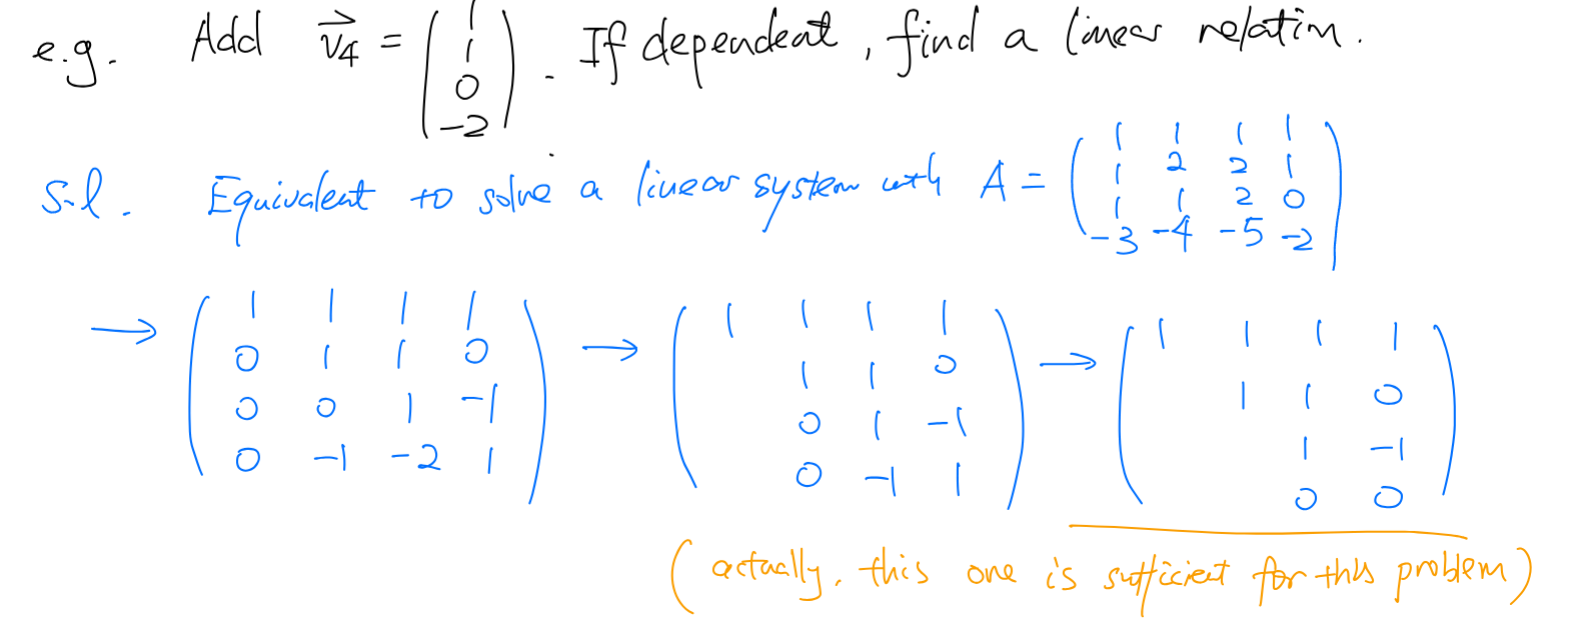 e.g. Add v⃗4 = (1 1 0 -2). If dependent, find a linear relation.
Sol. Equivalent to solve a linear system with A = (1 1 1 1; 1 2 2 1; 1 1 2 0; -3 -4 -5 -2)
→ (1 1 1 1; 0 1 1 0; 0 0 1 -1; 0 -1 -2 1) → (1 1 1 1; 1 1 0; 0 1 -1; 0 -1 1) → (1 1 1 1; 1 1 0; 1 -1; 0 0)
(actually, this one is sufficient for this problem)